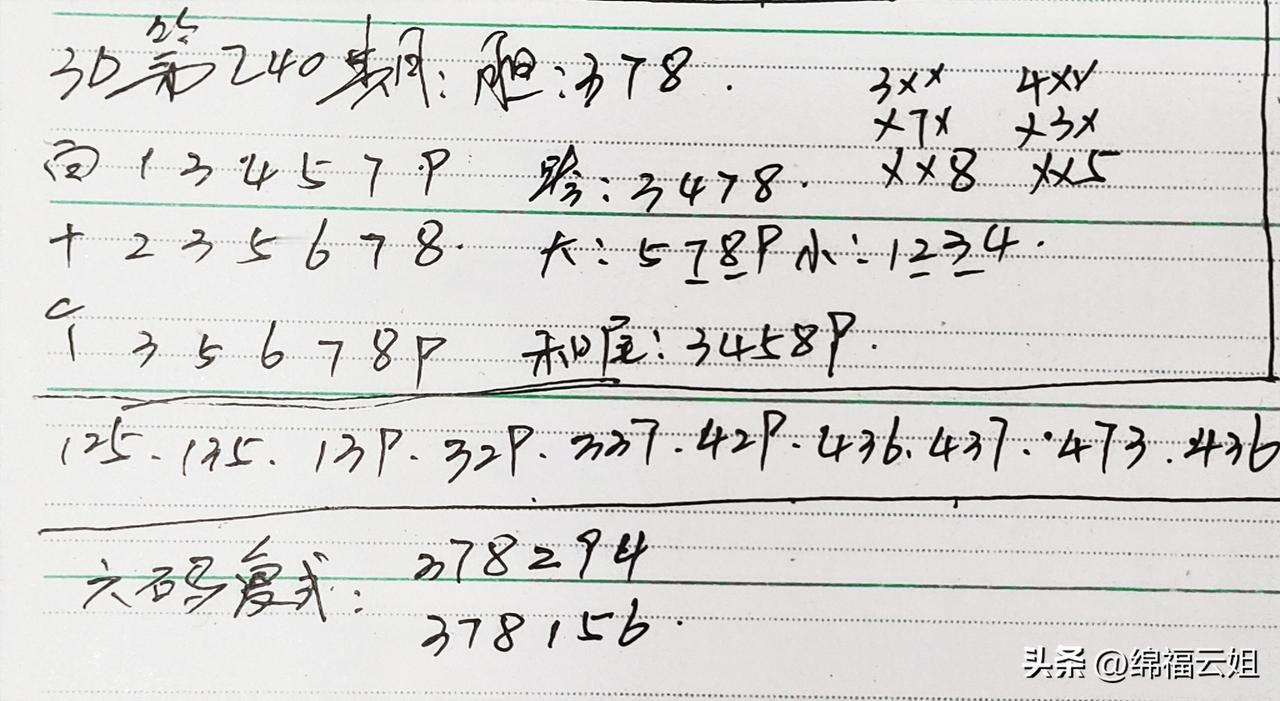 3D第240期:胆:378.
3×× 4××
×7× ×3×
××8 ××5
百 1 3 4 5 7 9 跨:3478.
十 2 3 5 6 7 8. 大:5789 小:1234.
个 3 5 6 7 8 9 和尾:34589.
125.135.139.329.337.429.436.437.473.436
六码复式: 378294
378156.
头条 @绵福云姐